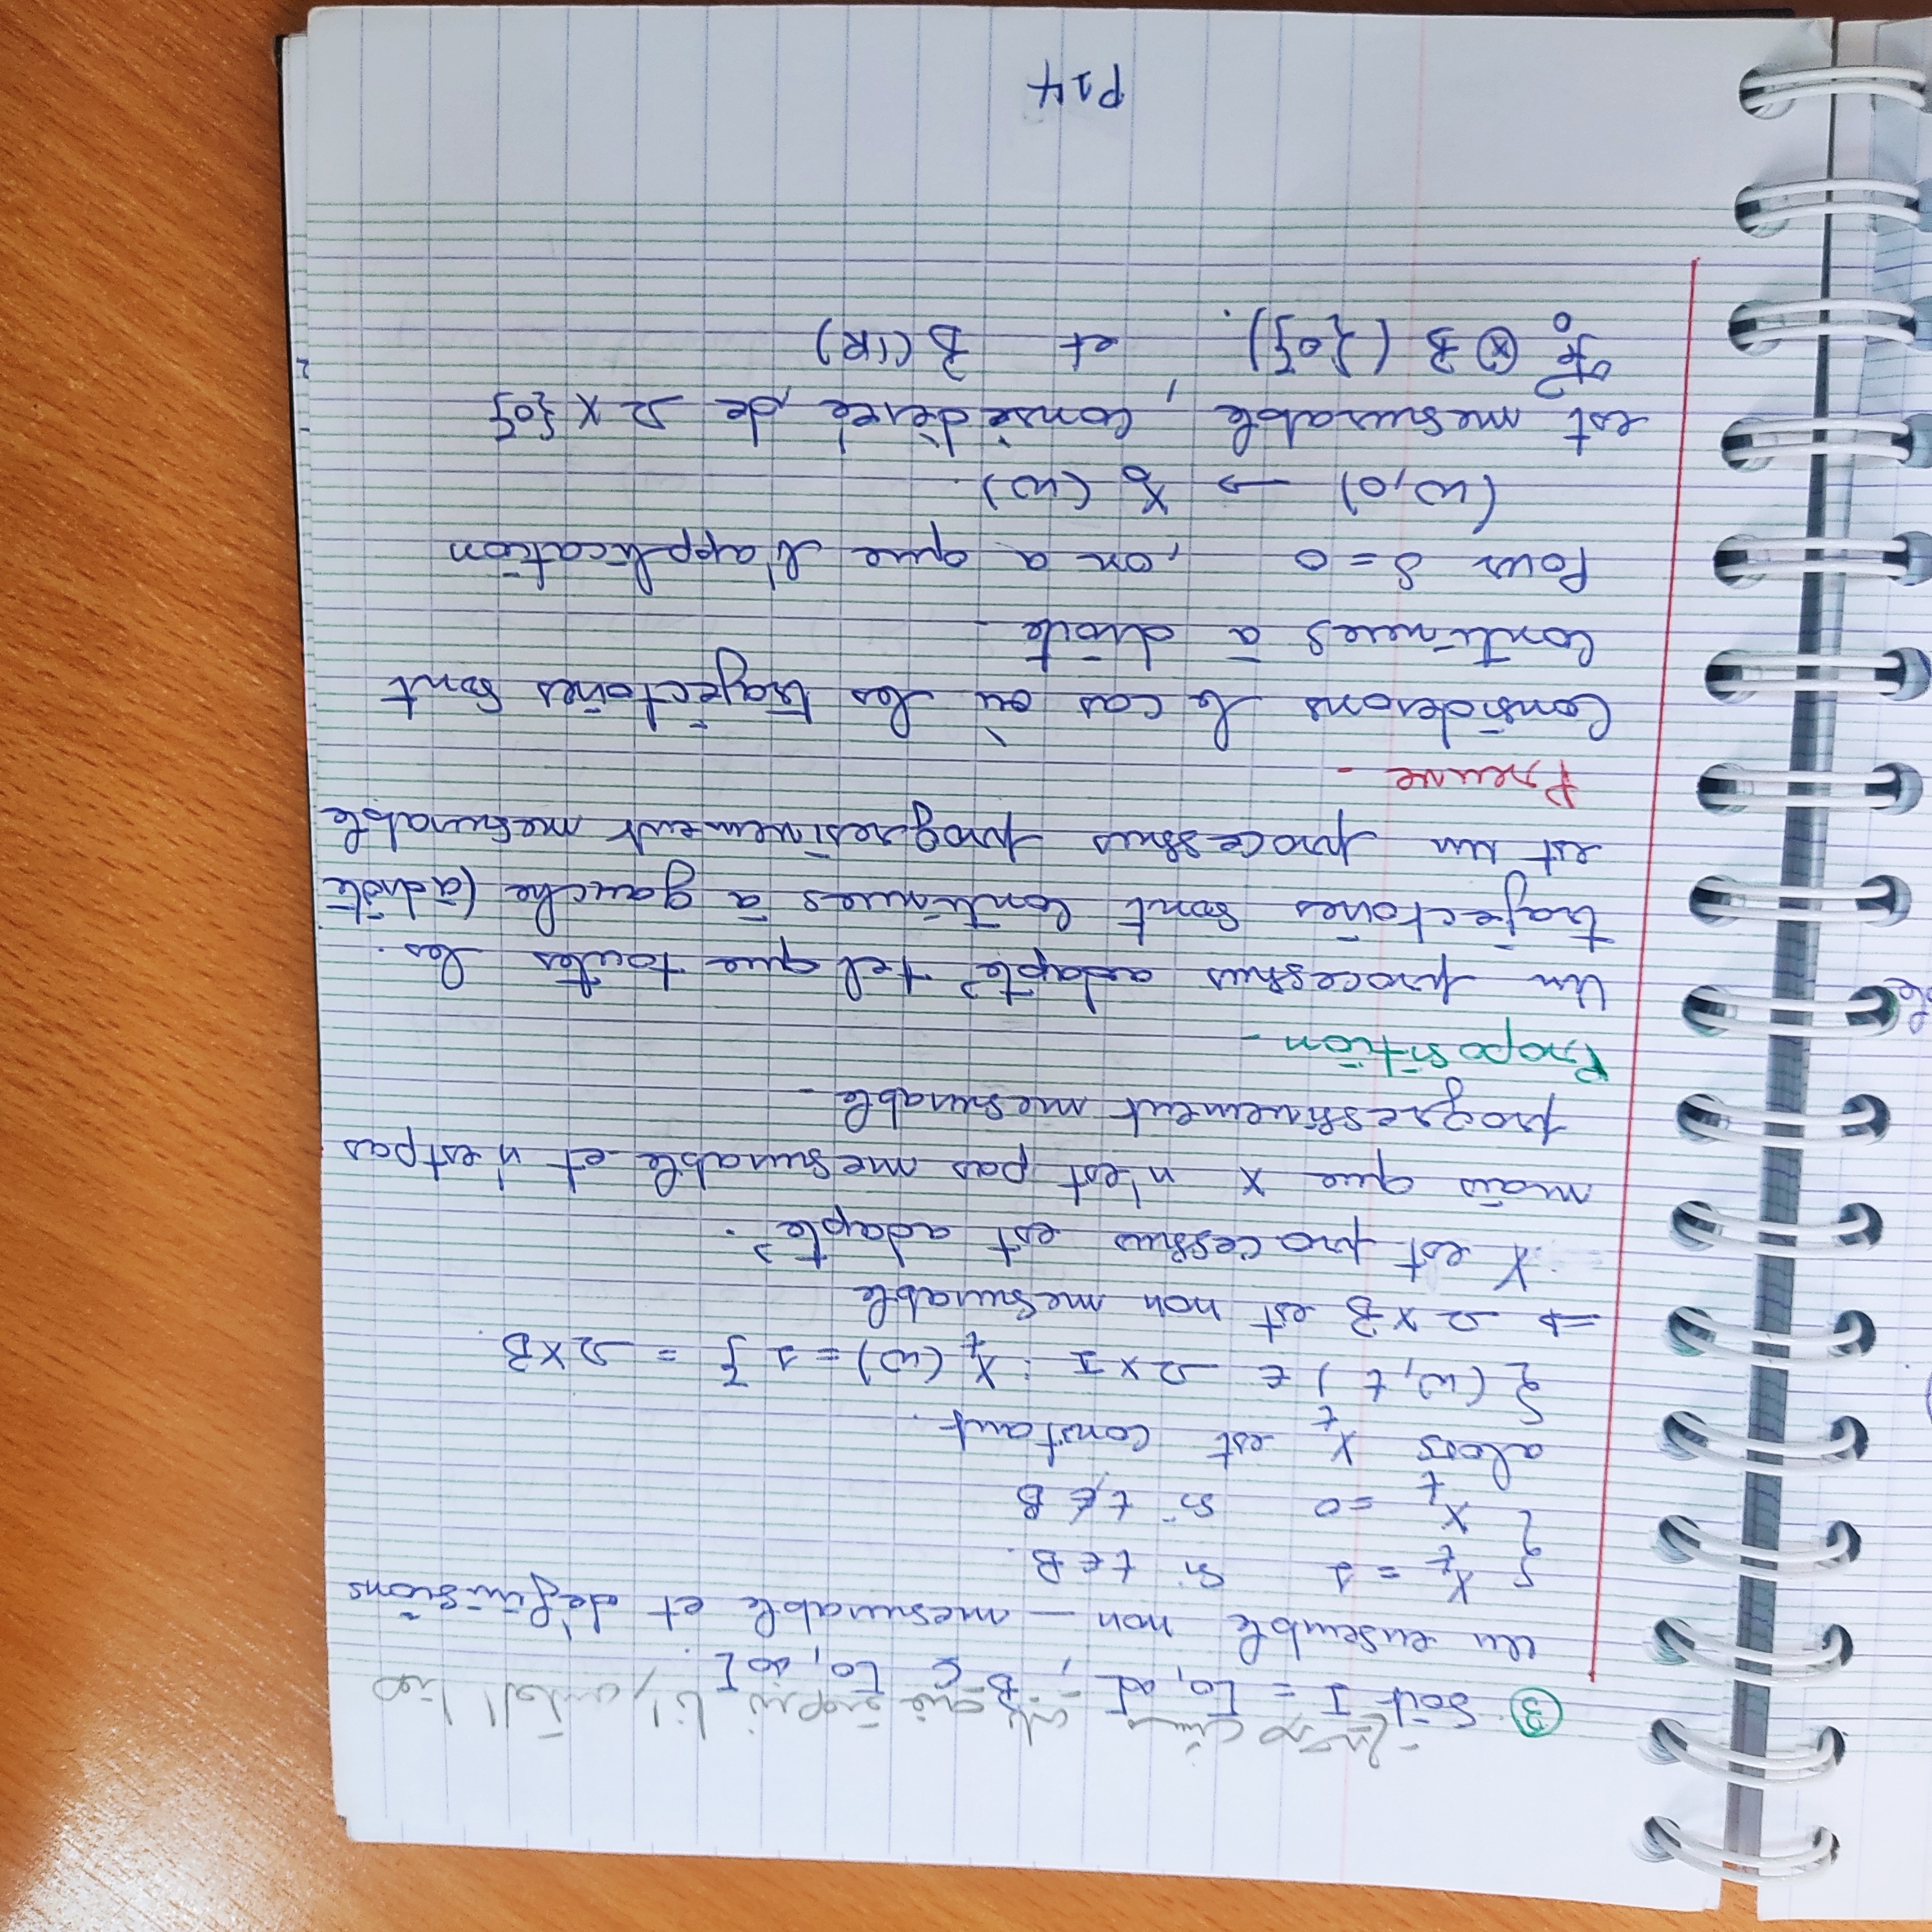 هذا العكس رانا فيه بلي مش صحيح -
③ Soit I = [0, ∞[ , B ⊊ [0, ∞[.
un ensemble non - mesurable et définisions
{ X_t = 1 si t ∈ B.
X_t = 0 si t ∉ B
alors X_t est constant.
{ (ω, t) ∈ Ω × I : X_t (ω) = 1 } = Ω × B.
⇒ Ω × B est non mesurable
X est processus est adapté.
mais que X n'est pas mesurable et n'est pas
progressivement mesurable -
Proposition -
Un processus adapté tel que toutes les.
trajectoires sont continues à gauche (à droite
est un processus progresivement mesurable
Preuve -
Considerons le cas où les trajectoires sont
continues à droite -
Pour s = 0 , on a que l'application
(ω, 0) → X_0 (ω).
est mesurable, considèreé, de Ω × {0}
ℱ_0 ⊗ B ({0}). et B(IR)
P14